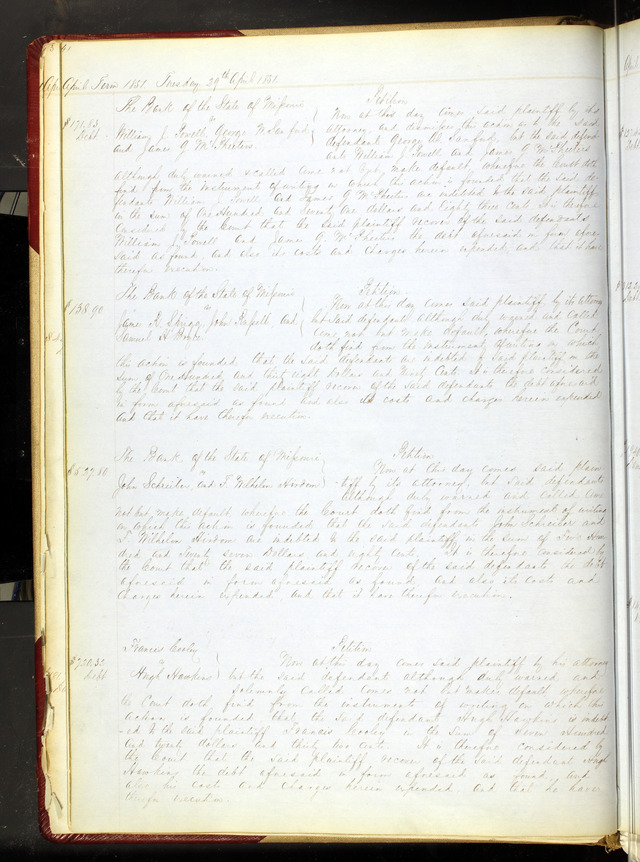 April Term 1851. Tuesday 29th April 1851.
The Bank of the State of Missouri
vs
William J. Powell, George W Sanford
and James G McPheeters
$171.83
Debt
Petition
Now at this day comes said plaintiff by its
attorney and dismisses this action as to the said
defendant George W Sanford, but the said defend
ants William J. Powell and James G McPheeters
although duly warned & called come not but make default wherefore the Court doth
find from the instrument of writing on which this action is founded that the said de-
fendants William J. Powell and James G. McPheeters are indebted to the said plaintiff
in the sum of One Hundred and Seventy one dollars and Eighty three Cents It is therefore
considered by the Court that the said plaintiff recover of the said defendants
William J. Powell and James G. McPheeters the debt aforesaid in form afore
said as found, and also its costs and charges herein expended, and that it have
therefor execution.
The Bank of the State of Missouri
vs
John Russell, and
$138.90
Petition
Now at this day comes said plaintiff by its attorney
but said defendants although duly warned and called
come not but make default, wherefore the Court
doth find from the instrument of writing on which
this action is founded that the said defendants are indebted to said plaintiff in the
sum of One Hundred and thirty eight dollars and Ninety Cents It is therefore considered
by the Court that the said plaintiff recover of the said defendants the debt aforesaid
in form aforesaid as found and also its costs and charges herein expended
and that it have therefor execution.
The Bank of the State of Missouri
vs
John Scheiter, and F. Wilhelm
$527.80
Petition
Now at this day comes said plain-
tiff by its attorney, but said defendants
although duly warned and called come
not but make default wherefore the Court doth find from the instrument of writing
on which this action is founded that the said defendants John Scheiter and
F. Wilhelm are indebted to the said plaintiff in the sum of Five Hun
dred and Twenty seven Dollars and eighty cents, It is therefore considered by
the Court that the said plaintiff recover of the said defendants the debt
aforesaid in form aforesaid as found, and also its costs and
charges herein expended, and that it have therefor execution.
Francis
vs
Hugh Hawkins
$720.32
Debt
Petition
Now at this day comes said plaintiff by his attorney
but the said defendant although duly warned and
solemnly called comes not but makes default wherefore
the Court doth find from the instrument of writing on which this
action is founded that the said defendant Hugh Hawkins is indebt
-ed to the said plaintiff Francis in the Sum of Seven Hundred
and twenty dollars and thirty two cents. It is therefore considered by
the Court that the said Plaintiff recover of the said defendant Hugh
Hawkins the debt aforesaid in form aforesaid as found and
also his costs and charges herein expended and that he have
therefor execution.